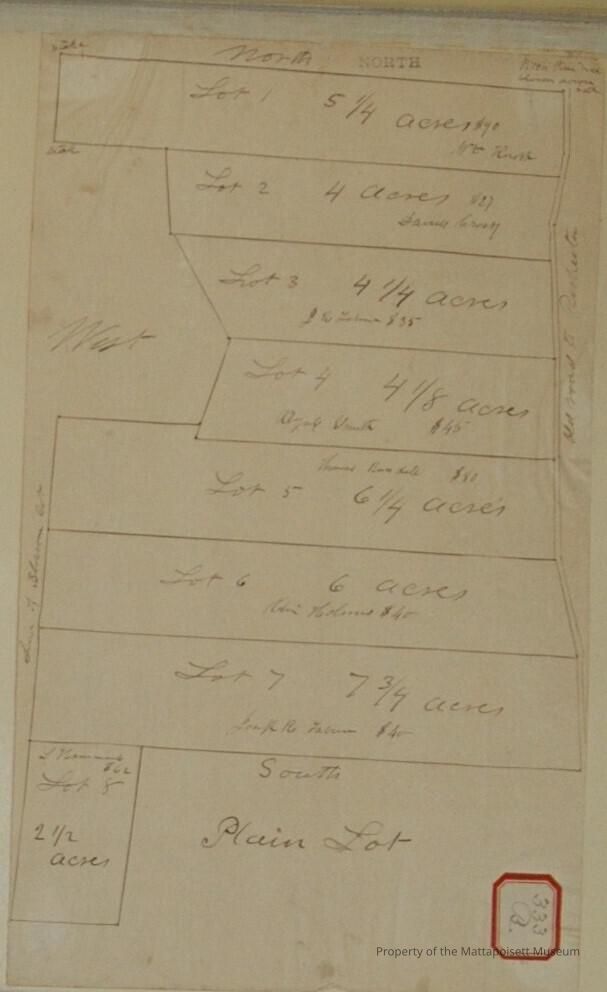 stake
North NORTH
Lot 1 5 1/4 acres $90
stake
Lot 2 4 acres $27
Lot 3 4 1/4 acres
$35
West
Lot 4 4 1/8 acres
$45
Old road to Rochester
Thomas Randall $50
Lot 5 6 1/4 acres
Lot 6 6 acres
Holmes $40
Line of
Lot 7 7 3/4 acres
$40
$62
Lot 8
2 1/2
acres
South
Plain Lot
333
B.
Property of the Mattapoisett Museum